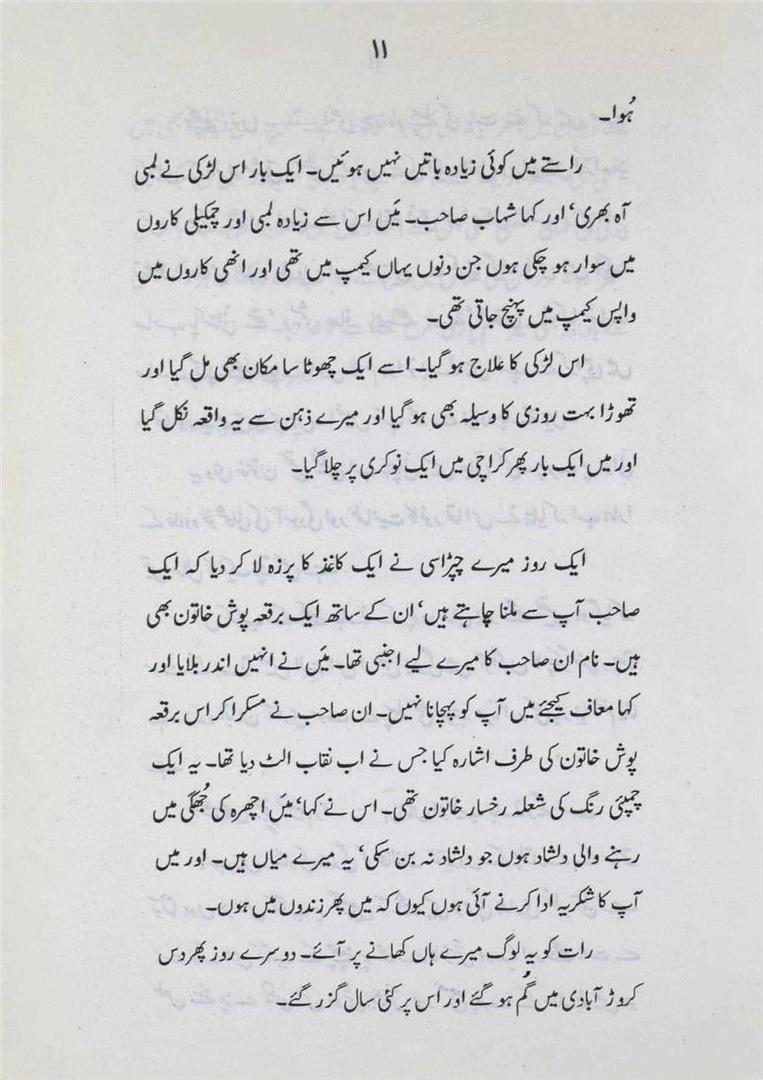 ۱۱
ہُوا۔
راستے میں کوئی زیادہ باتیں نہیں ہوئیں۔ ایک بار اس لڑکی نے لمبی
آہ بھری، اور کہا شہاب صاحب۔ مَیں اس سے زیادہ لمبی اور چمکیلی کاروں
میں سوار ہو چکی ہوں جن دنوں یہاں کیمپ میں تھی اور انھی کاروں میں
واپس کیمپ میں پہنچ جاتی تھی۔
اس لڑکی کا علاج ہو گیا۔ اسے ایک چھوٹا سا مکان بھی مل گیا اور
تھوڑا بہت روزی کا وسیلہ بھی ہو گیا اور میرے ذہن سے یہ واقعہ نکل گیا
اور میں ایک بار پھر کراچی میں ایک نوکری پر چلا گیا۔
ایک روز میرے چپڑاسی نے ایک کاغذ کا پرزہ لا کر دیا کہ ایک
صاحب آپ سے ملنا چاہتے ہیں، ان کے ساتھ ایک برقعہ پوش خاتون بھی
ہیں۔ نام ان صاحب کا میرے لیے اجنبی تھا۔ مَیں نے انہیں اندر بلایا اور
کہا معاف کیجئے میں آپ کو پہچانا نہیں۔ ان صاحب نے مسکرا کر اس برقعہ
پوش خاتون کی طرف اشارہ کیا جس نے اب نقاب الٹ دیا تھا۔ یہ ایک
چمپئی رنگ کی شعلہ رخسار خاتون تھی۔ اس نے کہا، مَیں اچھرہ کی جُھگی میں
رہنے والی دلشاد ہوں جو دلشاد نہ بن سکی، یہ میرے میاں ہیں۔ اور میں
آپ کا شکریہ ادا کرنے آئی ہوں کیوں کہ میں پھر زندوں میں ہوں۔
رات کو یہ لوگ میرے ہاں کھانے پر آئے۔ دوسرے روز پھر دس
کروڑ آبادی میں گُم ہو گئے اور اس پر کئی سال گزر گئے۔